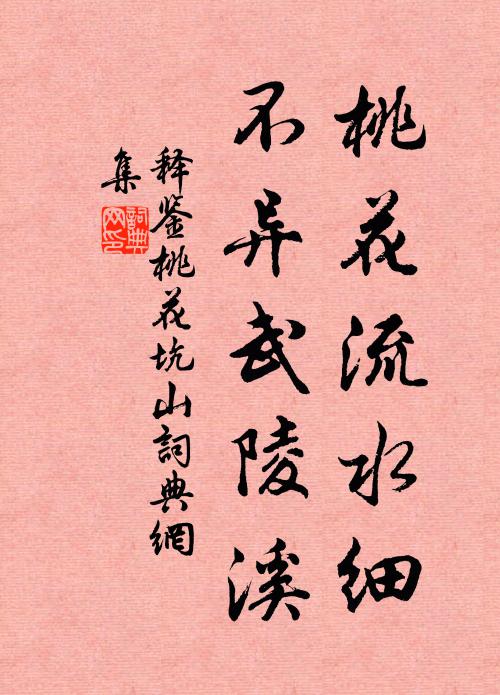 桃花流水细
不异武陵溪
释鉴桃花坑山詞典網
集
詞典
网印